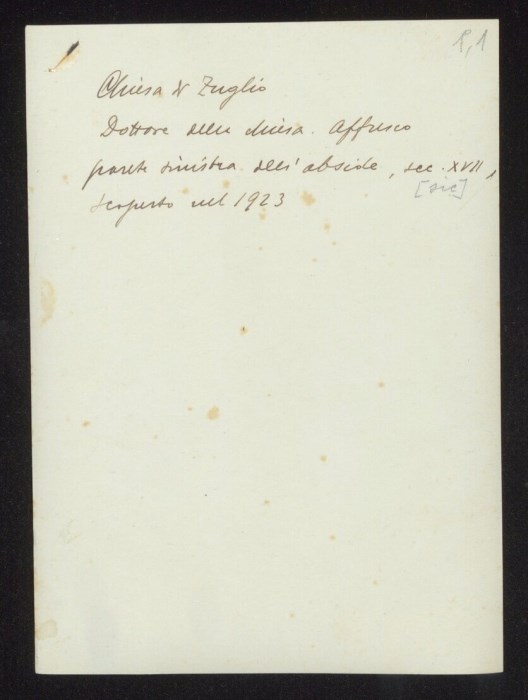 1,1
Chiesa di Zuglio
Dottore della chiesa. Affresco
parete sinistra dell'abside, sec. XVII,
[sic]
scoperto nel 1923